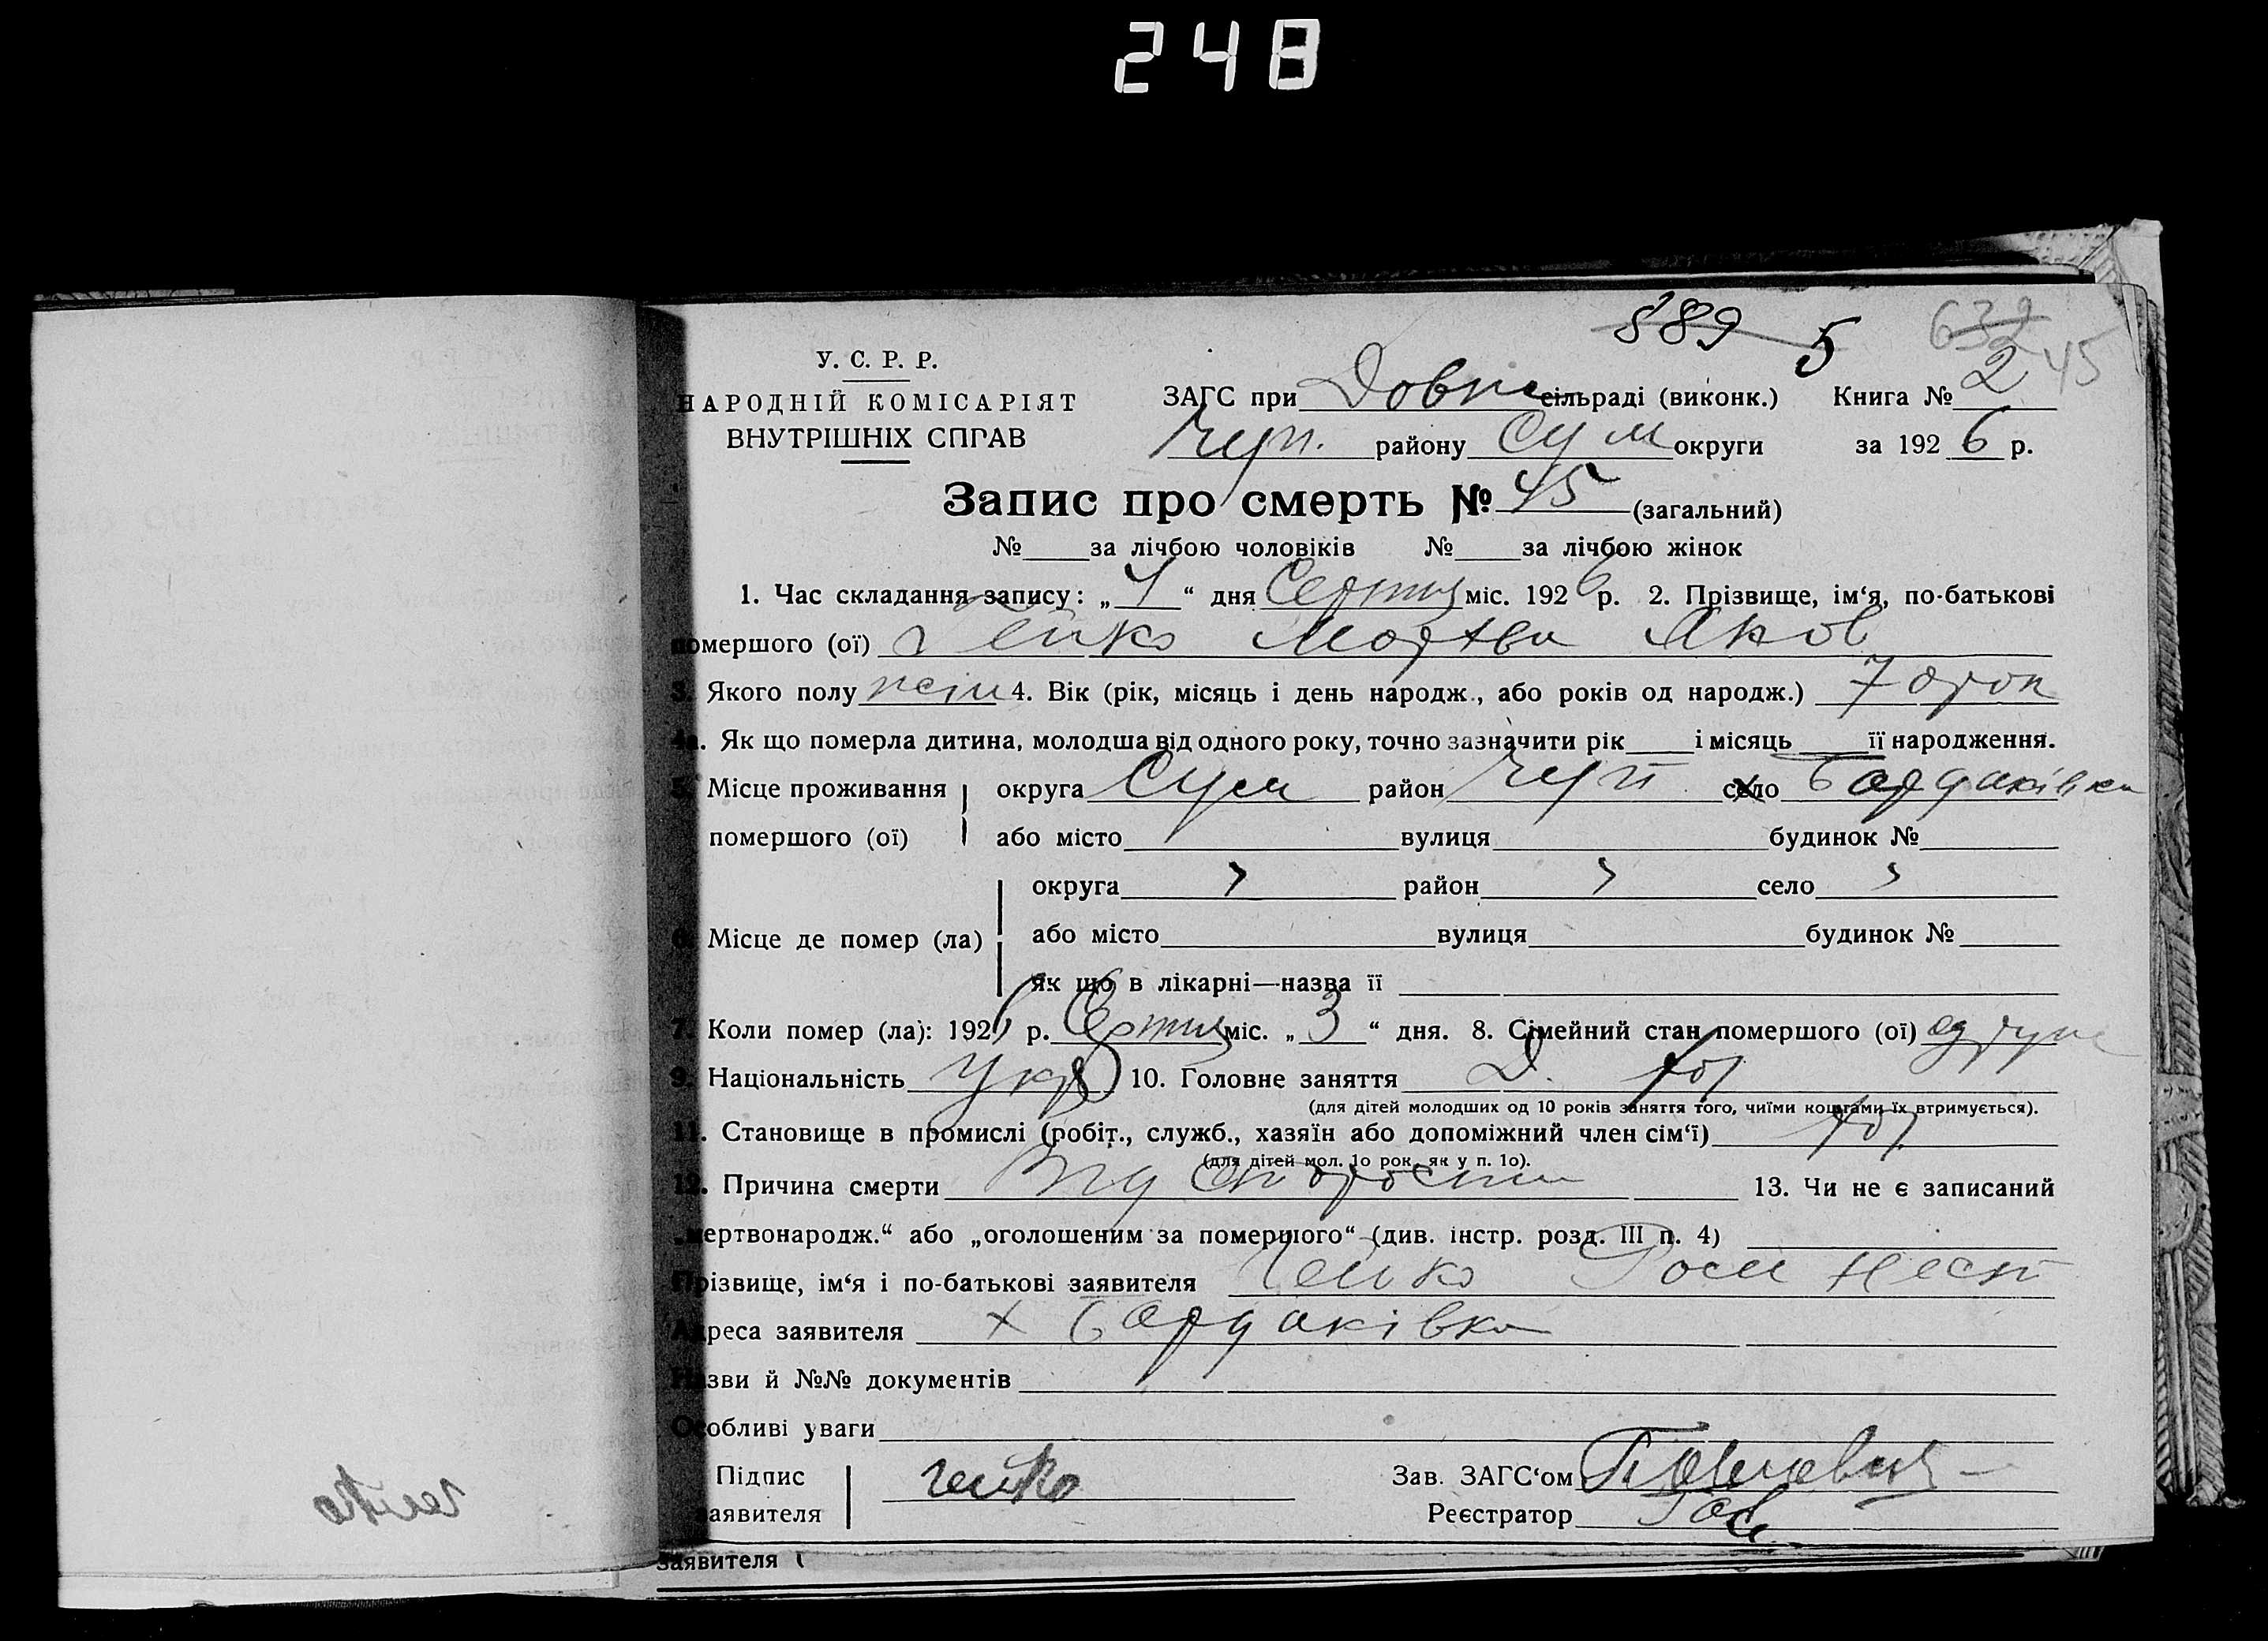 248
889 5 632 45
У. С. Р. Р.
НАРОДНІЙ КОМІСАРІЯТ
ВНУТРІШНІХ СПРАВ
ЗАГС при сільраді (виконк.) Книга № 2
Чуп. району Сум округи за 1926 р.
Запис про смерть № 45 (загальний)
№ за лічбою чоловіків № за лічбою жінок
1. Час складання запису: „4“ дня міс. 1926 р. 2. Прізвище, ім‘я, по-батькові
помершого (ої) Чейко Яков
3. Якого полу 4. Вік (рік, місяць і день народж., або років од народж.)
4а. Як що померла дитина, молодша від одного року, точно зазначити рік і місяць її народження.
5. Місце проживання округа Сум район Чуп село Бардаківка
помершого (ої) або місто вулиця будинок №
округа район село
6. Місце де помер (ла) або місто вулиця будинок №
як що в лікарні—назва її
7. Коли помер (ла): 1926 р. міс. „3“ дня. 8. Сімейний стан помершого (ої)
9. Національність Укр 10. Головне заняття
(для дітей молодших од 10 років заняття того, чиїми коштами їх втримується).
11. Становище в промислі (робіт., служб., хазяїн або допоміжний член сім‘ї)
(для дітей мол. 1о рок. як у п. 1о).
12. Причина смерти 13. Чи не є записаний
„мертвонародж.“ або „оголошеним за помершого“ (див. інстр. розд. III п. 4)
Прізвище, ім‘я і по-батькові заявителя Чейко Нест
Адреса заявителя х Бардаківка
Назви й №№ документів
Особливі уваги
Підпис Чейко Зав. ЗАГС‘ом
заявителя Реєстратор
заявителя